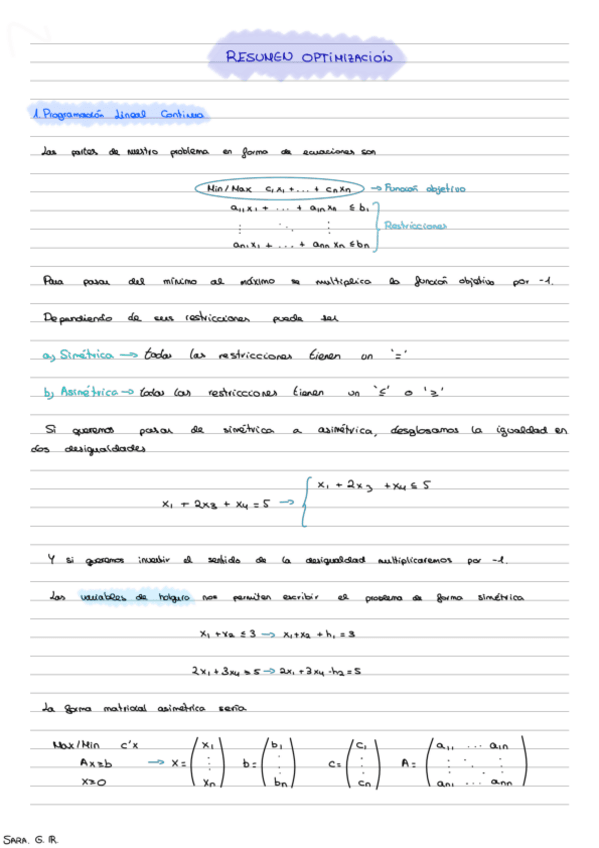 RESUMEN OPTIMIZACIÓN
1. Programación Lineal Continua
Las partes de nuestro problema en forma de ecuaciones son
Min/Max c₁x₁ + ... + cₙxₙ → Función objetivo
a₁₁x₁ + ... + a₁ₙxₙ ≤ b₁
⋮ ⋱ ⋮ Restricciones
aₙ₁x₁ + ... + aₙₙxₙ ≤ bₙ
Para pasar del mínimo al máximo se multiplica la función objetivo por -1.
Dependiendo de sus restricciones puede ser
a) Simétrica → todas las restricciones tienen un '='
b) Asimétrica → todas las restricciones tienen un '≤' o '≥'
Si queremos pasar de simétrica a asimétrica, desglosamos la igualdad en
dos desigualdades
x₁ + 2x₃ + x₄ ≤ 5
x₁ + 2x₃ + x₄ = 5 →
Y si queremos invertir el sentido de la desigualdad multiplicaremos por -1.
Las variables de holgura nos permiten escribir el problema de forma simétrica
x₁ + x₂ ≤ 3 → x₁ + x₂ + h₁ = 3
2x₁ + 3x₄ ≥ 5 → 2x₁ + 3x₄ - h₂ = 5
La forma matricial asimétrica sería
Max/Min c'x
Ax ≥ b → x = (x₁ ⋮ xₙ) b = (b₁ ⋮ bₙ) c = (c₁ ⋮ cₙ) A = (a₁₁ ... a₁ₙ ⋮ ⋱ ⋮ aₙ₁ ... aₙₙ)
x ≥ 0
SARA. G. R.